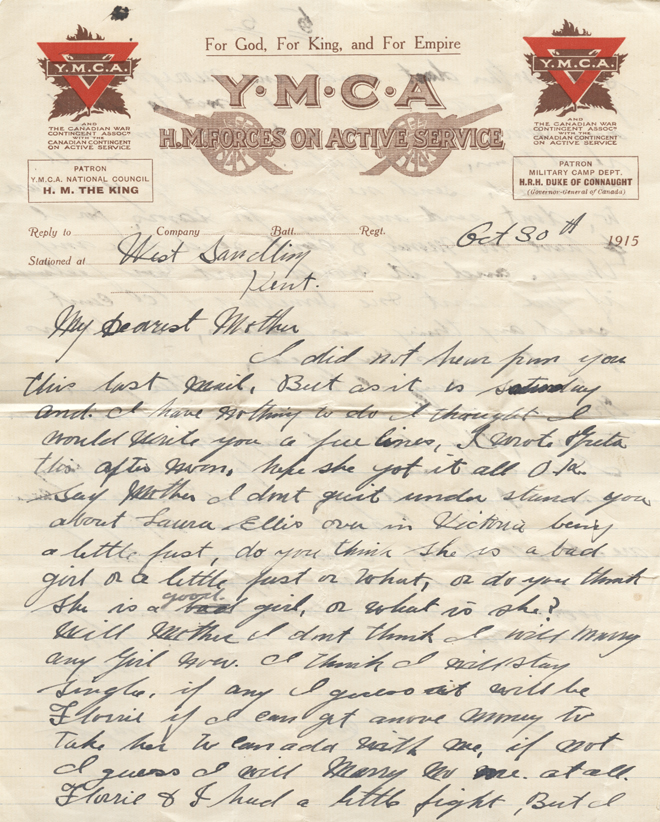 For God, For King, and For Empire
Y.M.C.A.
AND
THE CANADIAN WAR
CONTINGENT ASSOCN
WITH THE
CANADIAN CONTINGENT
ON ACTIVE SERVICE
PATRON
Y.M.C.A. NATIONAL COUNCIL
H. M. THE KING
Y·M·C·A
H.M.FORCES ON ACTIVE SERVICE
Y.M.C.A.
AND
THE CANADIAN WAR
CONTINGENT ASSOCN
WITH THE
CANADIAN CONTINGENT
ON ACTIVE SERVICE
PATRON
MILITARY CAMP DEPT.
H.R.H. DUKE OF CONNAUGHT
(Governor-General of Canada)
Reply to Company Batt. Regt.
Oct 30th 1915
Stationed at West Sandling
Kent.
My Dearest Mother
I did not hear from you
this last mail. But as it is saturday
and I have nothing to do I thought I
would write you a few lines, I wrote Greta
this after noon, hope she got it all O.K.
Say Mother I dont quit under stand you
about Laura Ellis over in Victoria being
a little fast, do you think she is a bad
girl or a little fast or what, or do you think
she is a good girl, or what is she?
Will Mother I dont think I will marry
any Girl now. I think I will stay
single, if any I guess it will be
Florrie if I can get anove money to
take her to canada with me, if not
I guess I will Marry no one at all.
Florrie & I had a little fight, But I